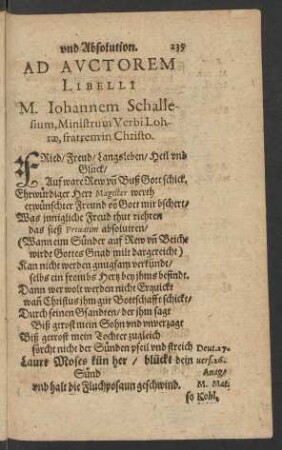 vnd Absolution. 239
AD AVCTOREM
LIBELLI
M. Iohannem Schalle-
sium, Ministrum Verbi Loh-
ræ, fratrem in Christo.
FRied/ Freud/ Langsleben/ Heil vnd
Glück/
Auf ware Rew vñ Buß Gott schick,
Ehrwürdiger Herr Magister werth
erwünschter Freund võ Gott mir bschert/
Was innigliche Freud thut richten
das süeß Privatum absolviren/
(Wann eim Sünder auf Rew vñ Beicht
wirdt Gottes Gnad milt dargereicht)
Kan nicht werden gnugsam verkündt/
selbs ein fromms Hertz bey jhms befindt.
Dann wer wolt werden nicht Erquickt
wañ Christus jhm gut Bottschafft schickt/
Durch seinen Gsandten/ der jhm sagt
Biß getrost mein Sohn vnd vnverzagt
Biß getrost mein Tochter zugleich
förcht nicht der Sünden pfeil vnd streich Deut. 27.
Laure Moses kün her/ blückt dein vers. 26.
Sünd
vnd halt die Fluchposaun geschwind. M. Mat.
so Kohl.